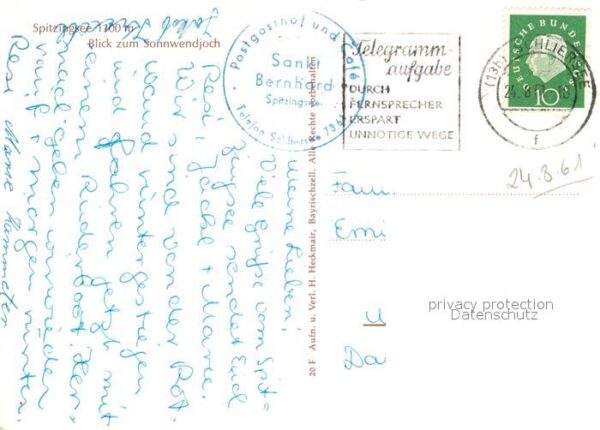 Spitzingsee 1100 m
Blick zum Sonnwendjoch
Postgasthof und Hotel
Sankt
Bernhard
Spitzingsee
Telefon Schliersee
Telegramm-
aufgabe
DURCH
FERNSPRECHER
ERSPART
UNNÖTIGE WEGE
(13b) SCHLIERSEE
24. 8. 61
f
DEUTSCHE BUNDESPOST
10
24.8.61
Meine Lieben!
Viele Grüße vom Spit=
zingsee sendet Euch
Resi, Jackl + Marie.
Wir sind von der Rot
wand runtergestiegen
und fahren jetzt mit
einem Ruderboot. Her=
nach gehen wir wieder
rauf + morgen runter.
Resi Marie
20 F Aufn. u. Verl. H. Heckmair, Bayrischzell. Alle Rechte vorbehalten
Fam.
Emi
U
Da
privacy protection
Datenschutz